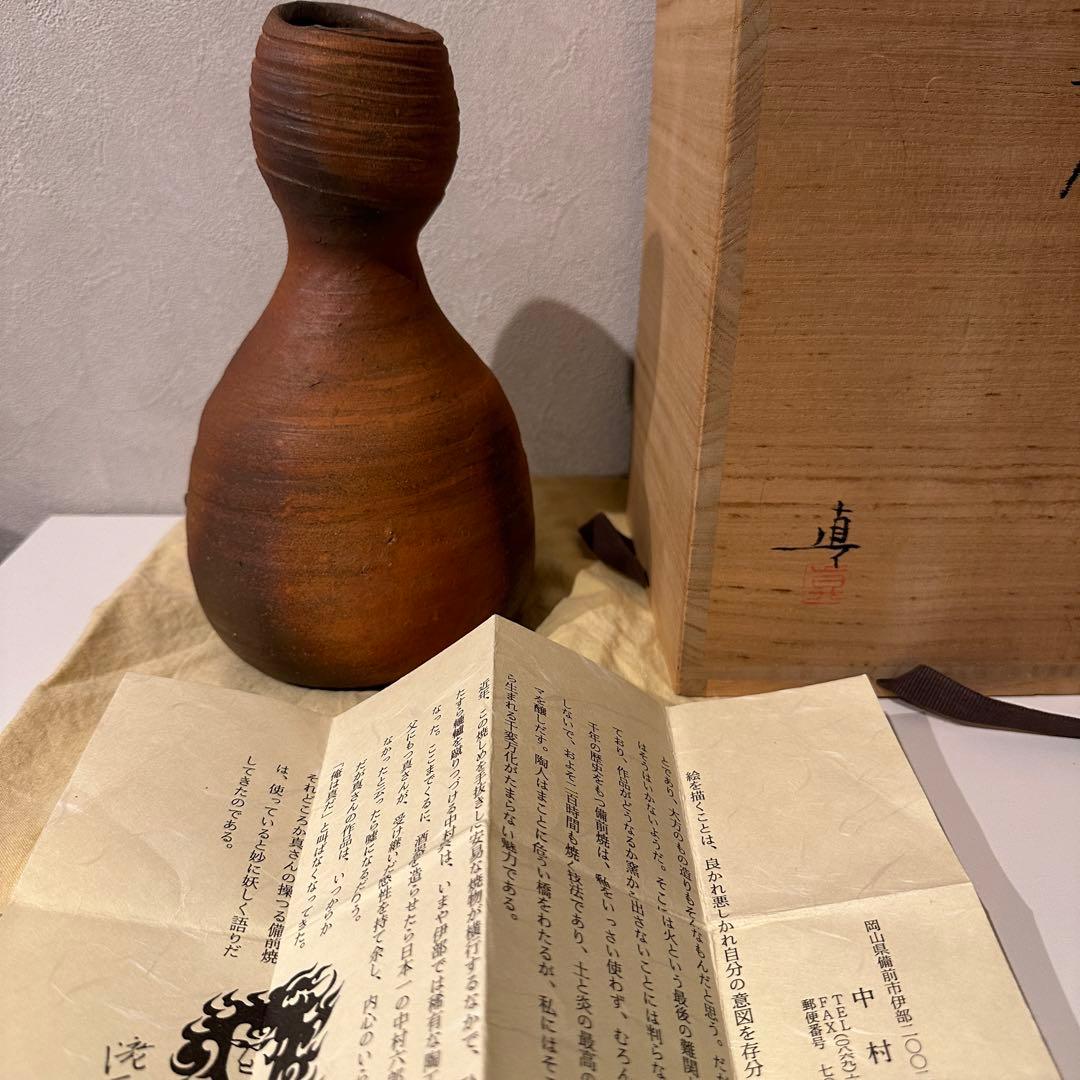 真
絵を描くことは、良かれ悪しかれ自分の意図を存分
とであり、大方のもの造りもそんなもんだと思う。だが
はそうはいかないようだ。そこには火という最後の難関
ており、作品がどうなるか窯から出さないことには判らな
千年の歴史をもつ備前焼は、釉をいっさい使わず、むろん
しないで、およそ二百時間も焼く技法であり、土と炎の最高の
マを醸しだす。陶人はまことに危うい橋をわたるが、私にはそこ
ら生まれる千変万化がたまらない魅力である。
近年、この焼しめを手抜きした安易な焼物が横行するなかで、
たすら轆轤を蹴りつづける中村真は、いまや伊部では稀有な陶
なった。ここまでくるに、酒器を造らせたら日本一の中村六郎
父にもつ真さんが、受け継いだ感性を持て余し、内心のいら
なかったと云ったら嘘になるだろう。
だが真さんの作品は、いつからか
「俺は真だ」と叫ばなくなってきた。
それどころか真さんの操つる備前焼
は、使っていると妙に妖しく語りだ
してきたのである。
岡山県備前市伊部二〇〇
中村
TEL(〇八六九)
FAX
郵便番号 七